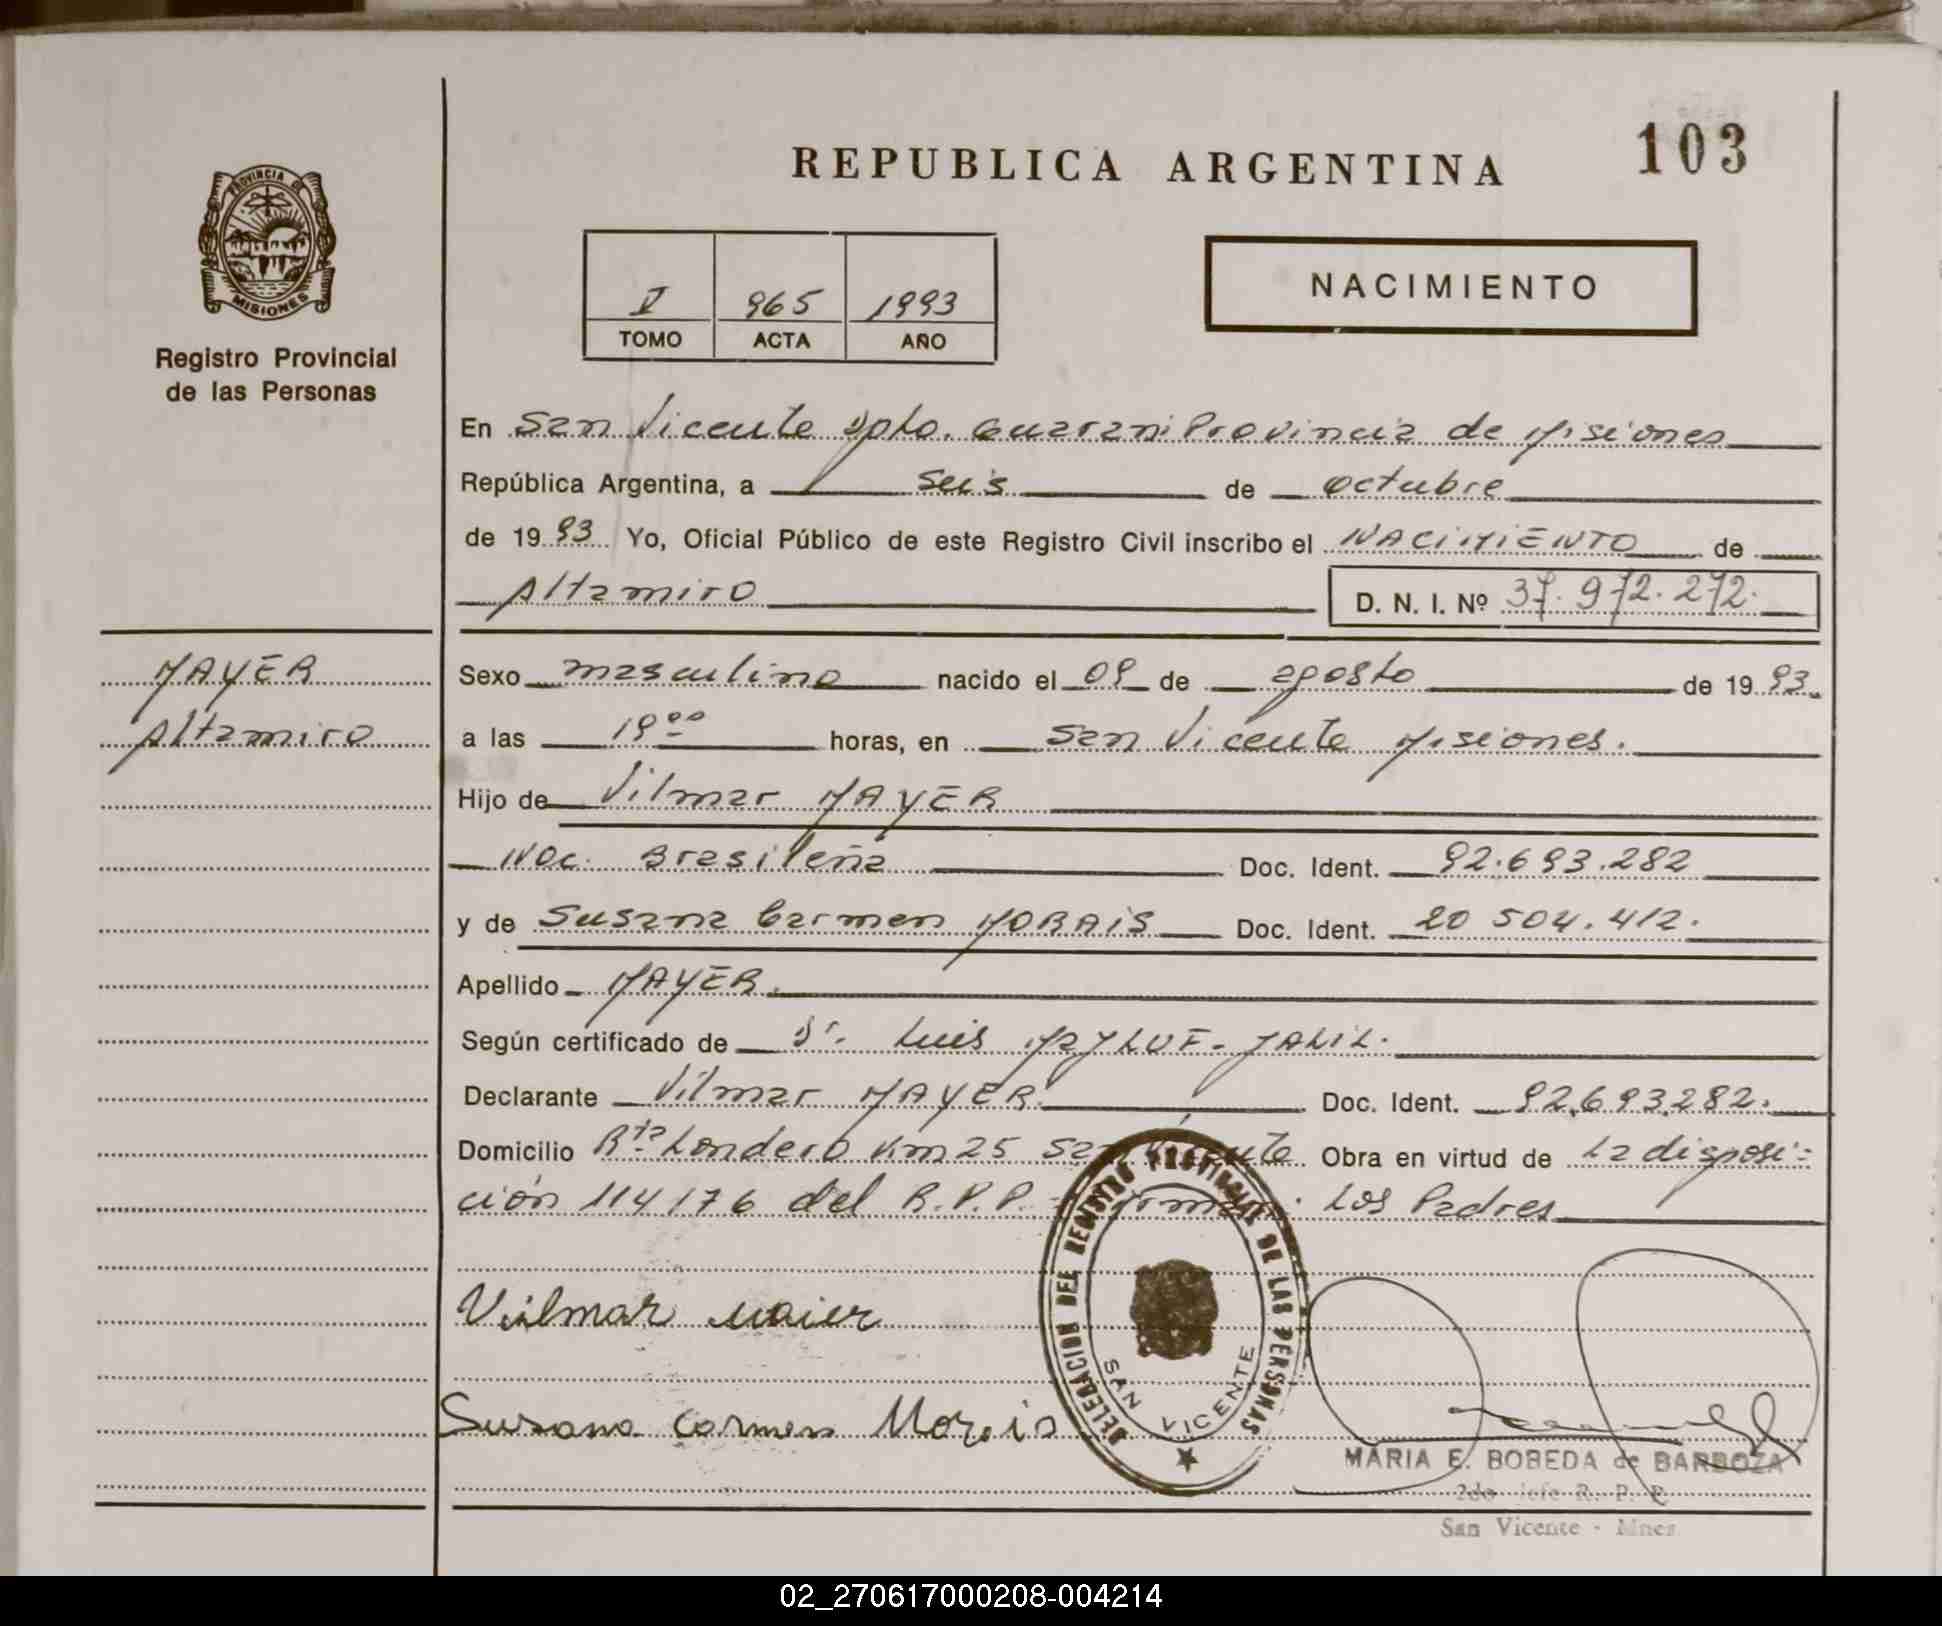 103
REPUBLICA ARGENTINA
PROVINCIA DE
MISIONES
Registro Provincial
de las Personas
V 965 1993
TOMO ACTA AÑO
NACIMIENTO
En San Vicente Dpto. Guarani Provincia de Misiones
República Argentina, a seis de octubre
de 1993 Yo, Oficial Público de este Registro Civil inscribo el NACIMIENTO de
Altamiro D. N. I. Nº 37.972.272.
MAYER
Altamiro
Sexo masculino nacido el 09 de agosto de 1993.
a las 19⁰⁰ horas, en San Vicente Misiones.
Hijo de Vilmar MAYER
Nac. Brasileña Doc. Ident. 92.693.282
y de Susana Carmen MORAIS Doc. Ident. 20 504.412.
Apellido MAYER.
Según certificado de Dr. Luis JALIL.
Declarante Vilmar MAYER Doc. Ident. 92.693.282.
Domicilio Rta Londero Km 25 San Vicente Obra en virtud de la disposi-
ción 114/76 del R.P.P. Firman: Los Padres
Vilmar maier
Susana Carmen Morais
DELEGACION DEL REGISTRO PROVINCIAL DE LAS PERSONAS
SAN VICENTE
MARIA E. BOBEDA de BARBOZA
2do Jefe R. P. P.
San Vicente - Mnes
02_270617000208-004214